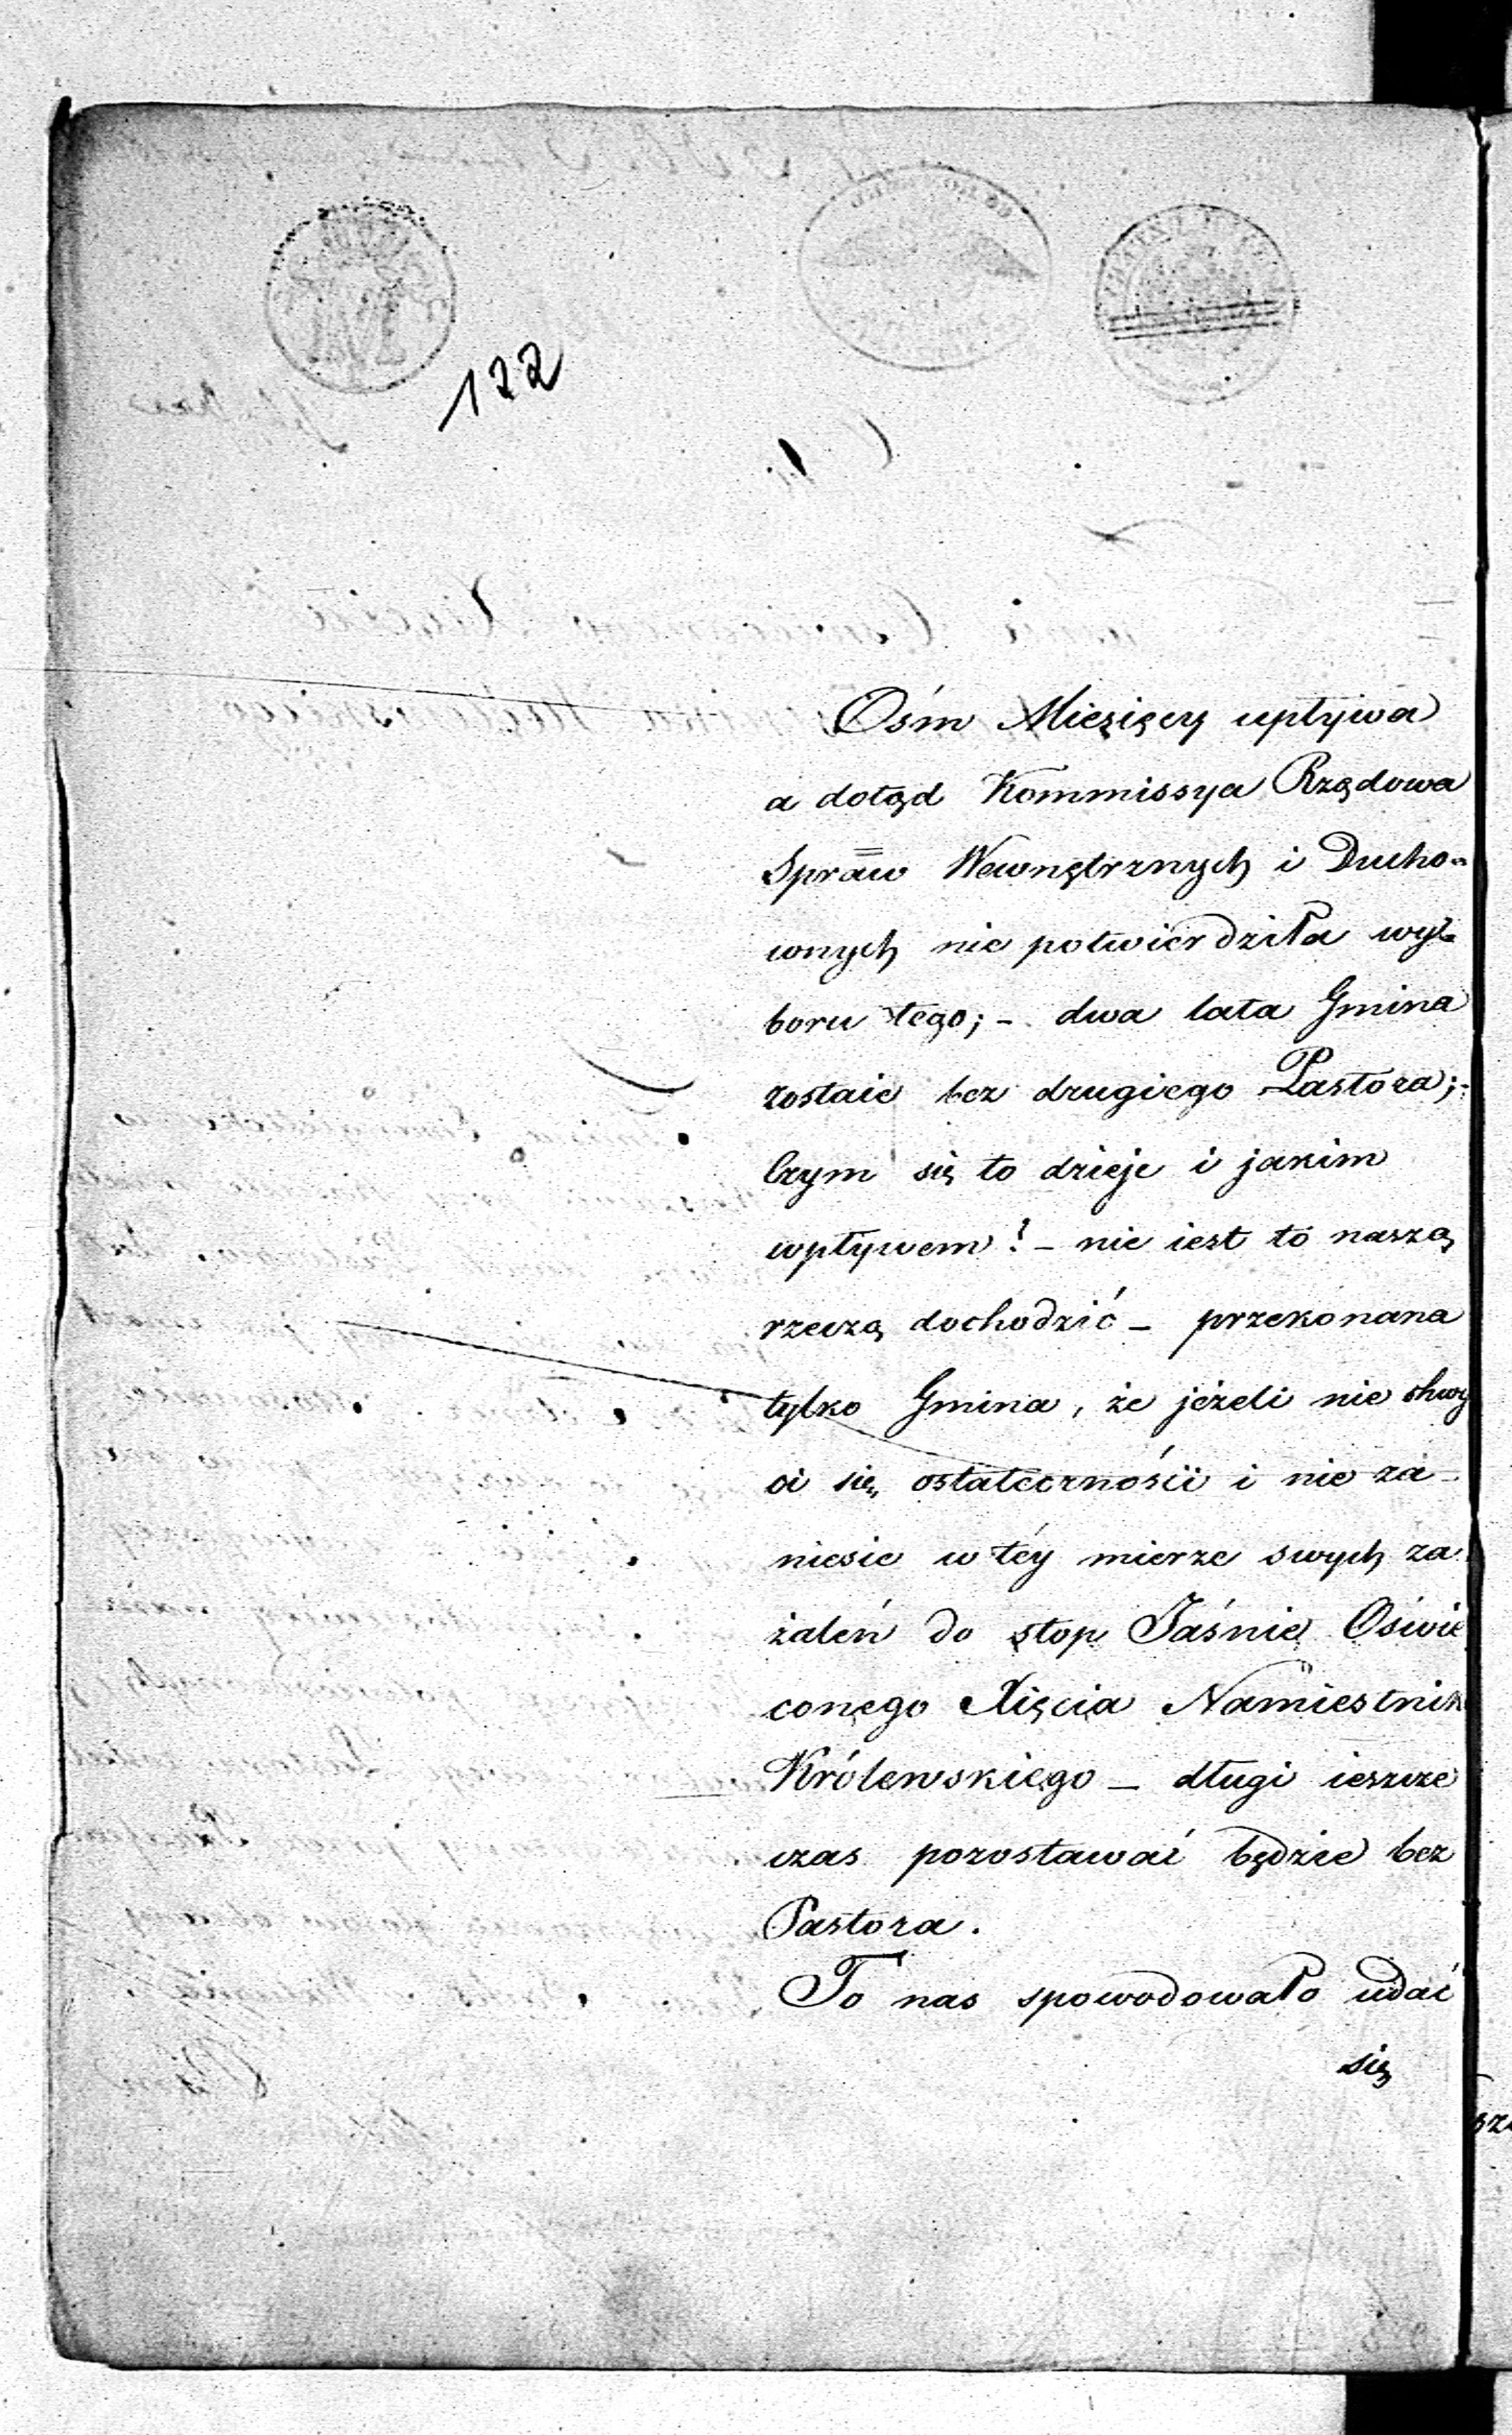 122
Ośm Miesięcy upływa
a dotąd Kommissya Rządowa
Spraw Wewnętrznych i Ducho=
wnych nie potwierdziła wy=
boru tego; - dwa lata Gmina
zostaie bez drugiego Pastora; -
Czym się to dzieje i jakim
wpływem? - nie iest to naszą
rzeczą dochodzić - przekonana
tylko Gmina, że jeżeli nie chwy
ci się ostateczności i nie za-
niesie w téy mierze swych za
żaleń do stop Jaśnie Oświe
conego Xięcia Namiestnik
Królewskiego - długi ieszcze
czas pozostawać będzie bez
Pastora.
To nas spowodowało udać
się